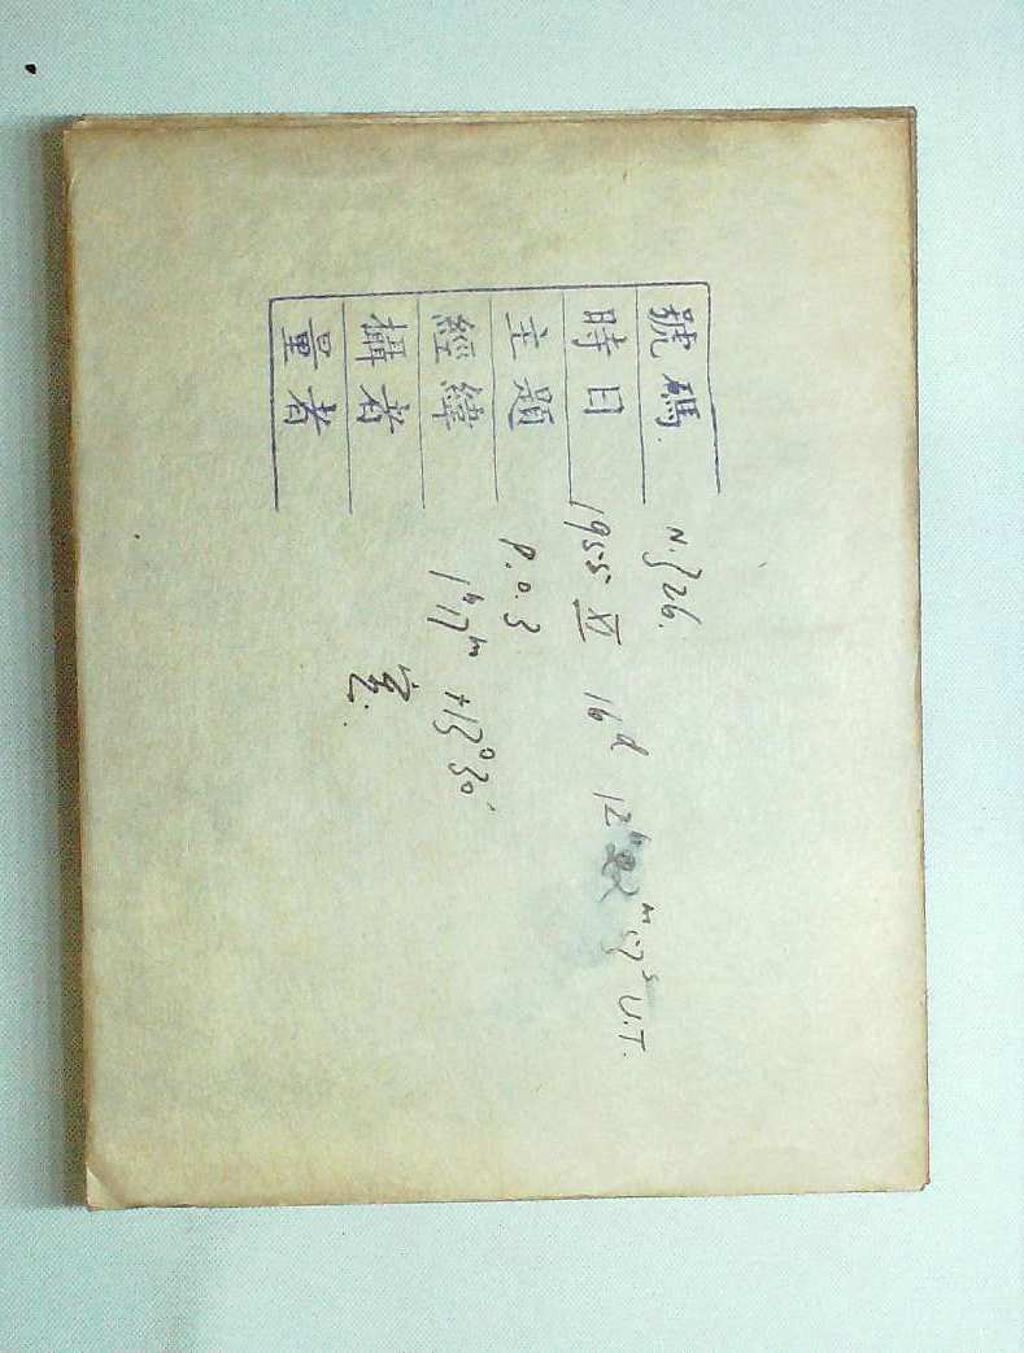 號碼 N. 326.
時日 1955 XI 16d 12h m 57s U.T.
主題 P.O. 3
經緯 1h17m +13°30'
攝者
量者